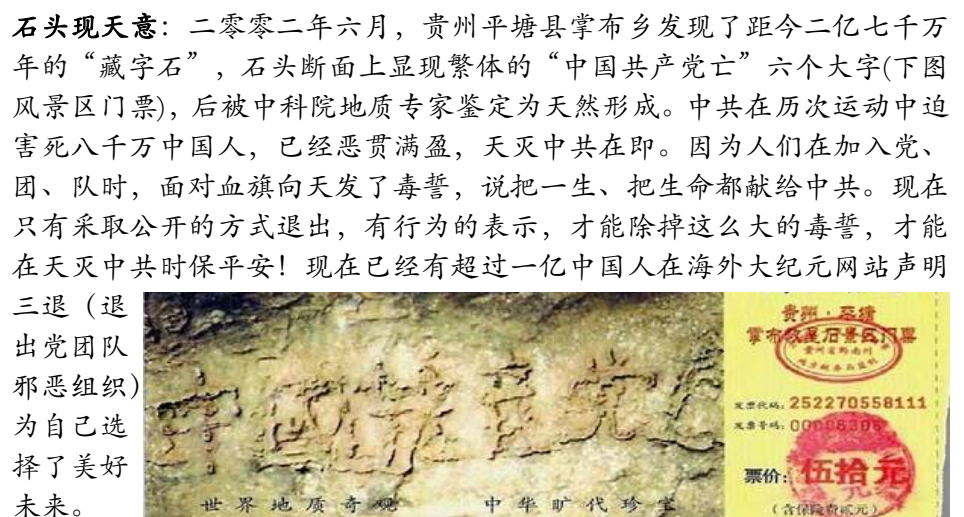 石头现天意：二零零二年六月，贵州平塘县掌布乡发现了距今二亿七千万
年的“藏字石”，石头断面上显现繁体的“中国共产党亡”六个大字(下图
风景区门票)，后被中科院地质专家鉴定为天然形成。中共在历次运动中迫
害死八千万中国人，已经恶贯满盈，天灭中共在即。因为人们在加入党、
团、队时，面对血旗向天发了毒誓，说把一生、把生命都献给中共。现在
只有采取公开的方式退出，有行为的表示，才能除掉这么大的毒誓，才能
在天灭中共时保平安！现在已经有超过一亿中国人在海外大纪元网站声明
三退（退
出党团队
邪恶组织）
为自己选
择了美好
未来。
中国共產党
世界地质奇观 中华旷代珍宝
贵州·平塘
掌布 景区门票
发票代码：252270558111
发票号码：00006306
票价：伍拾元
（含保险费贰元）